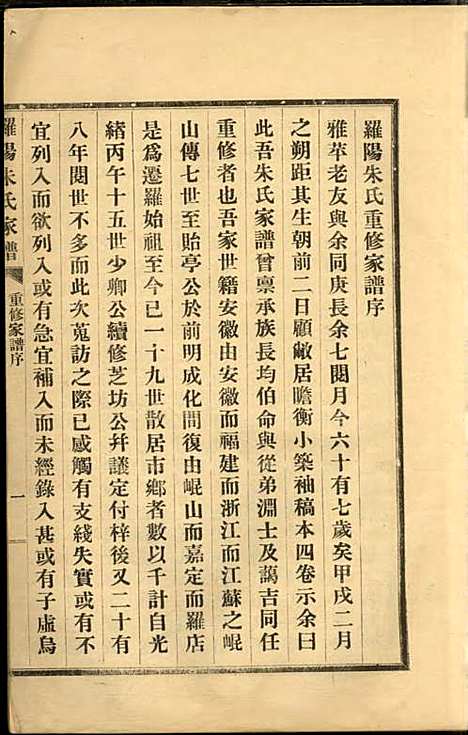 羅陽朱氏重修家譜序
雅苹老友與余同庚長余七閱月今六十有七歲矣甲戌二月
之朔距其生朝前二日顧敝居瞻衡小築袖稿本四卷示余曰
此吾朱氏家譜曾禀承族長均伯命與從弟淵士及藹吉同任
重修者也吾家世籍安徽由安徽而福建而浙江而江蘇之崐
山傳七世至貽亭公於前明成化間復由崐山而嘉定而羅店
是爲遷羅始祖至今已一十九世散居市鄉者數以千計自光
緒丙午十五世少卿公續修芝坊公幷議定付梓後又二十有
八年閱世不多而此次蒐訪之際已感觸有支綫失實或有不
宜列入而欲列入或有急宜補入而未經錄入甚或有子虛烏
羅陽朱氏家譜
重修家譜序
一